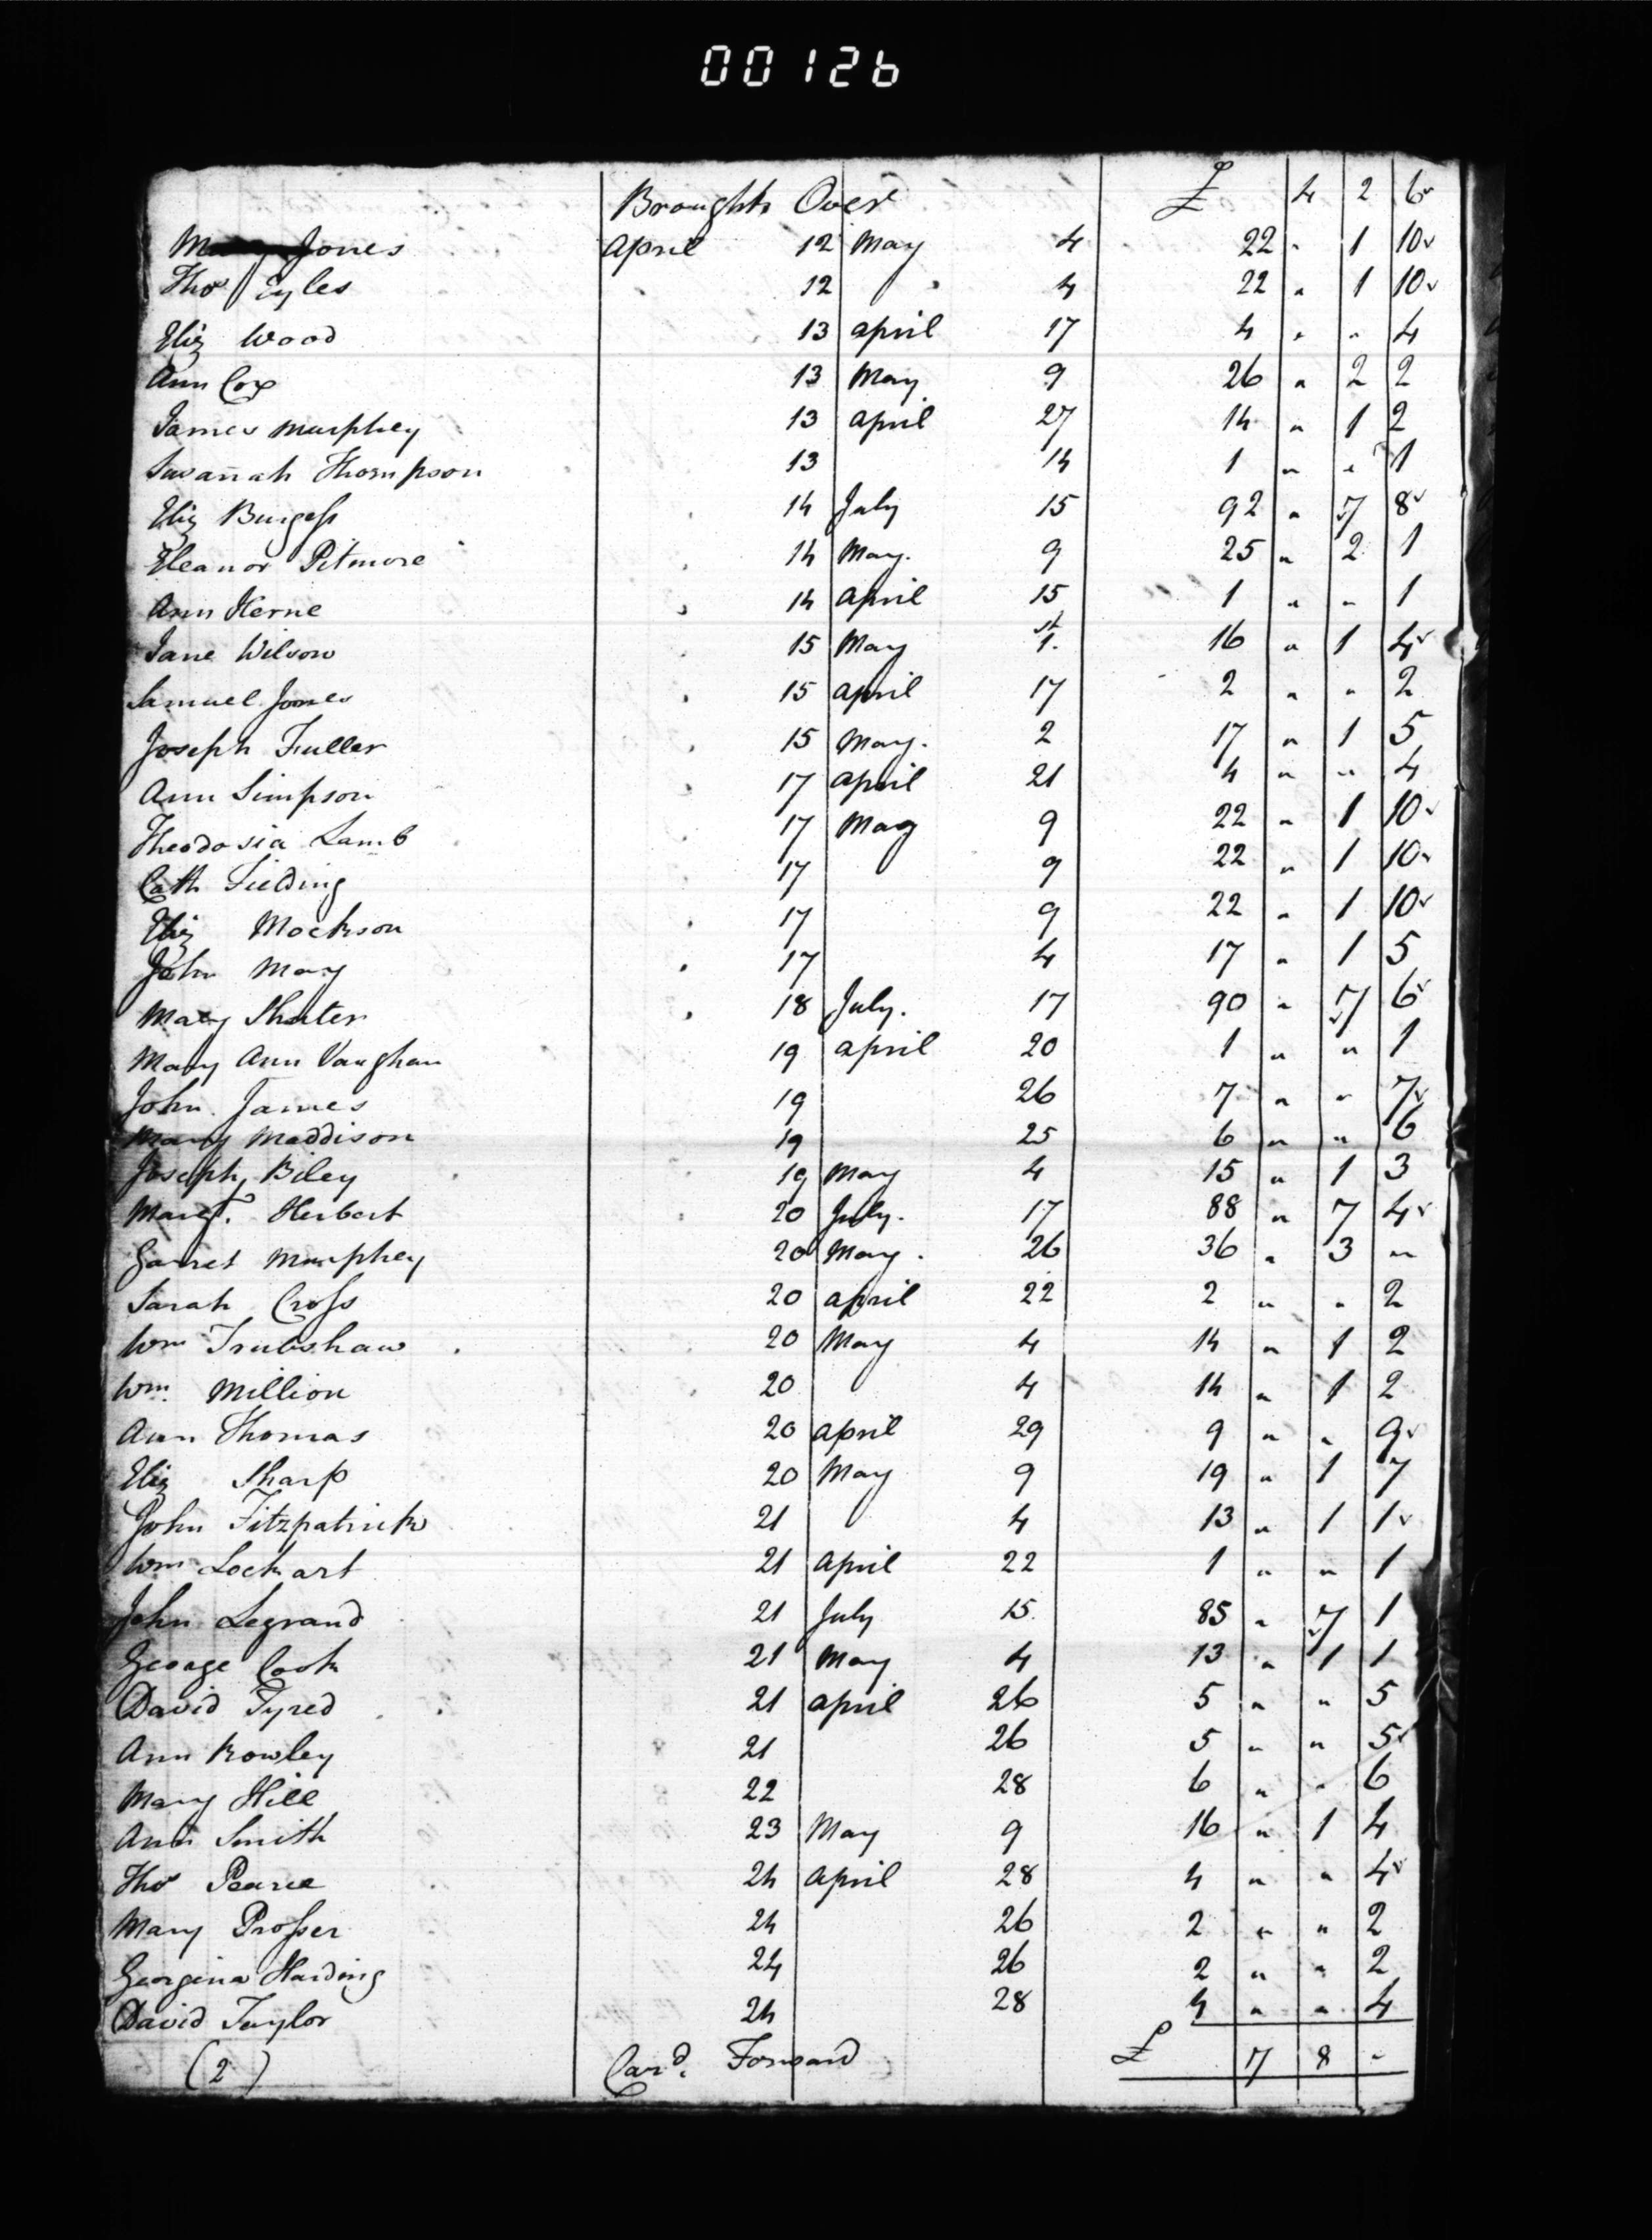 00126
Brought Over £ 4 2 6
Mary Jones April 12 May 4 22 " 1 10
Thos Eyles 12 " 4 22 " 1 10
Eliz Wood 13 april 17 4 " " 4
Ann Cox 13 May 9 26 " 2 2
James Murphey 13 april 27 14 " 1 2
Susanah Thompson 13 14 1 " " 1
Eliz Burgess 14 July 15 92 " 7 8
Eleanor Pitmore 14 May. 9 25 " 2 1
Ann Herne 14 april 15 1 " " 1
Jane Wilson 15 May 1st. 16 " 1 4
Samuel Jones 15 april 17 2 " " 2
Joseph Fuller 15 May. 2 17 " 1 5
Ann Simpson 17 april 21 4 " " 4
Theodosia Lamb 17 May 9 22 " 1 10
Cath Fielding 17 9 22 " 1 10
Eliz Mockson 17 9 22 " 1 10
John May 17 4 17 " 1 5
Mary Shuter 18 July. 17 90 " 7 6
Mary Ann Vaughan 19 april 20 1 " " 1
John James 19 26 7 " " 7
Mary Maddison 19 25 6 " " 6
Joseph Biley 19 May 4 15 " 1 3
Margt. Herbert 20 July. 17 88 " 7 4
Garret Murphey 20 May. 26 36 " 3 "
Sarah Cross 20 april 22 2 " " 2
Wm Trubshaw 20 May 4 14 " 1 2
Wm. Million 20 4 14 " 1 2
Ann Thomas 20 april 29 9 " " 9
Eliz Sharp 20 May 9 19 " 1 7
John Fitzpatrick 21 4 13 " 1 1
Wm Lockart 21 april 22 1 " " 1
John Legrand 21 July 15 85 " 7 1
George Cook 21 May 4 13 " 1 1
David Tyred 21 april 26 5 " " 5
Ann Rowley 21 26 5 " " 5
Mary Hill 22 28 6 " " 6
Ann Smith 23 May 9 16 " 1 4
Thos Pearce 24 april 28 4 " " 4
Mary Prosser 24 26 2 " " 2
Georgina Harding 24 26 2 " " 2
David Taylor 24 28 4 " " 4
(2) Card. Forward £ 7 8 -